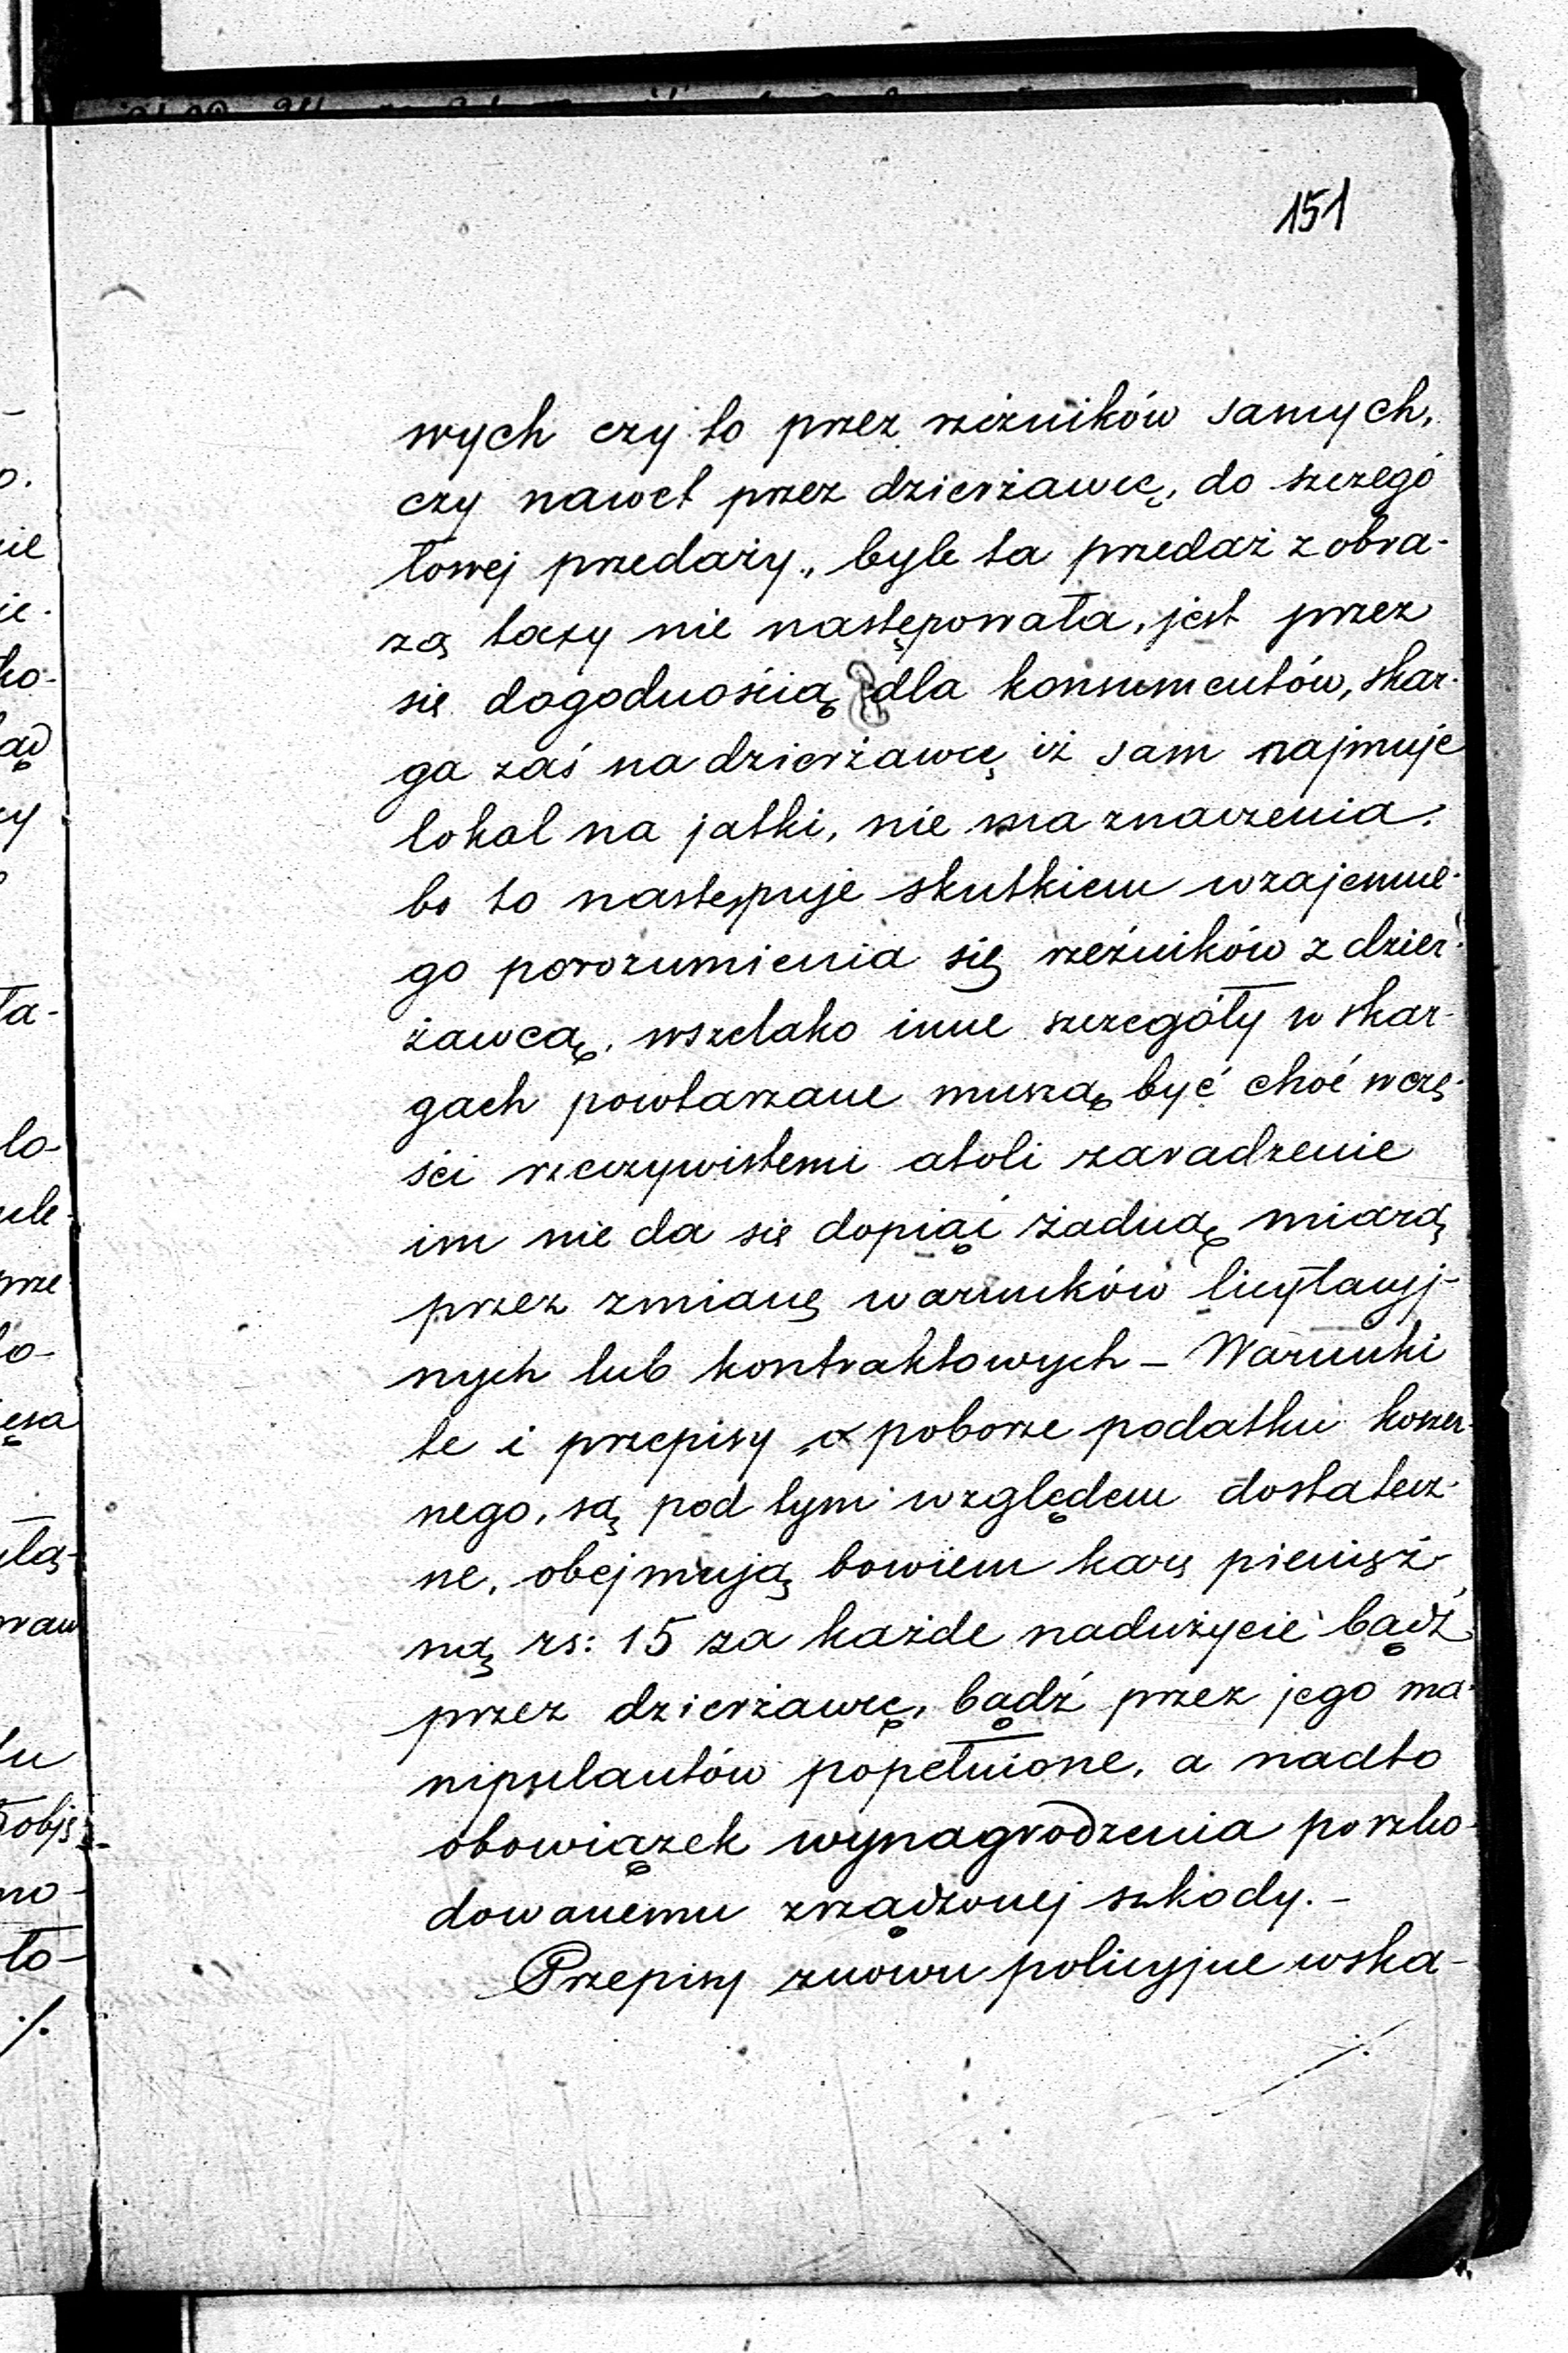 151
wych czy to przez rzeźników samych,
czy nawet przez dzierżawcę, do szczegó
łowej przedaży, byle ta przedaż z obra-
zą taxy nie następowała, jest przez
się dogodnością dla konsumentów, skar-
ga zaś na dzierżawcę iż sam najmuje
lokal na jatki, nie ma znaczenia.
bo to następuje skutkiem wzajemne-
go porozumienia się rzeźników z dzier-
żawcą, wszelako inne szczegóły w skar-
gach powtarzane muszą być choć w czę-
ści rzeczywistemi atoli zaradzenie
im nie da się dopiąć żadną miarą
przez zmianę warunków licytacyj-
nych lub kontraktowych – Warunki
te i przepisy o poborze podatku koszer-
nego, są pod tym względem dostatecz-
ne, obejmują bowiem karę pienięż-
ną rs: 15 za każde nadużycie bądź
przez dzierżawcę, bądź przez jego ma-
nipulantów popełnione, a nadto
obowiązek wynagrodzenia poszko-
dowanemu zrządzonej szkody. –
Przepisy znowu policyjne wska-